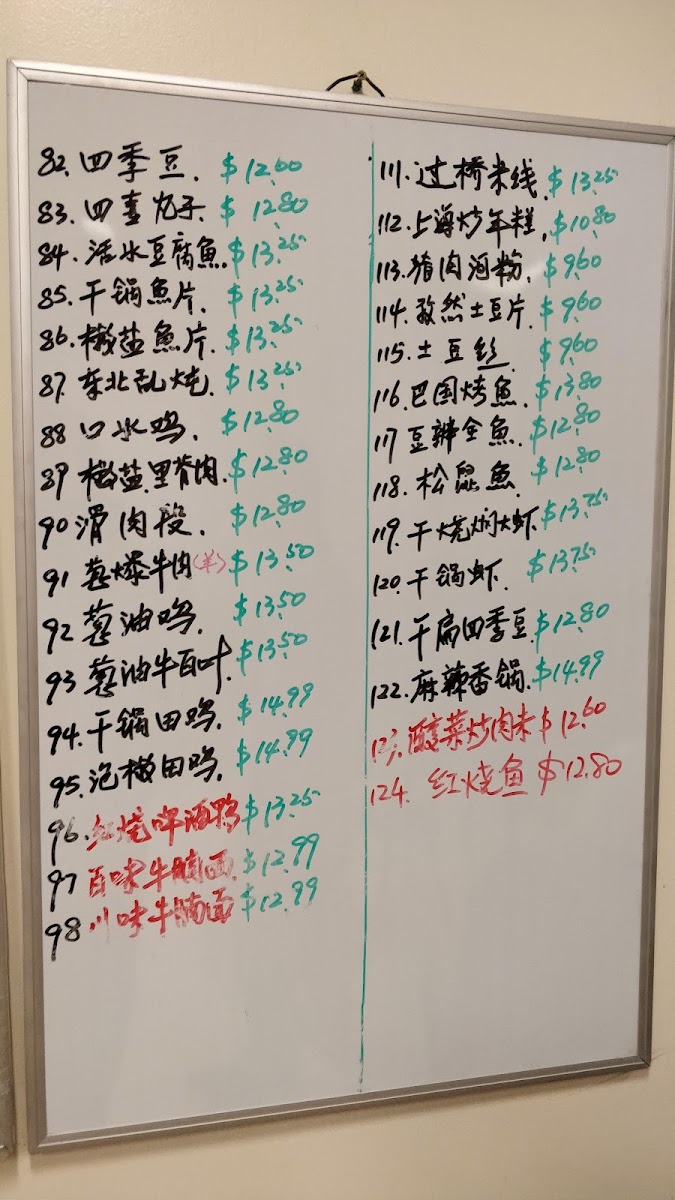 82. 四季豆. $12.00
83. 四喜丸子. $12.80
84. 活水豆腐魚. $13.25
85. 干锅魚片. $13.25
86. 椒盐魚片. $13.25
87. 东北乱炖. $13.25
88 口水鸡. $12.80
89 椒盐里脊肉. $12.80
90 滑肉段. $12.80
91 葱爆牛肉(羊) $13.50
92 葱油鸡. $13.50
93 葱油牛百叶. $13.50
94. 干锅田鸡. $14.99
95. 泡椒田鸡. $14.99
96. 红烧啤酒鸭 $13.25
97 百味牛腩面. $12.99
98 川味牛腩面 $12.99
111. 过桥米线. $13.25
112. 上海炒年糕. $10.80
113. 猪肉河粉. $9.60
114. 孜然土豆片. $9.60
115. 土豆丝. $9.60
116. 巴国烤魚. $13.80
117 豆瓣全魚. $12.80
118. 松鼠魚. $12.80
119. 干烧焖大虾. $13.75
120. 干锅虾. $13.75
121. 干扁四季豆. $12.80
122. 麻辣香锅. $14.99
123. 酸菜炒肉末 $12.60
124. 红烧鱼 $12.80